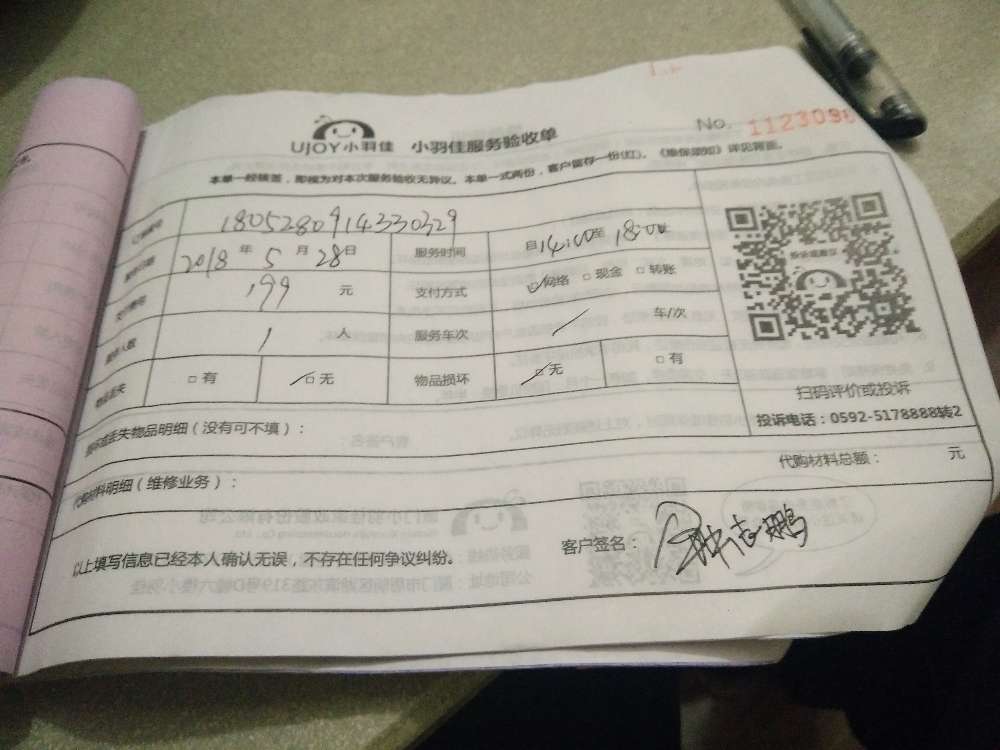 UJOY小羽佳 小羽佳服务验收单 No. 1123098
本单一经核签，即视为对本次服务验收无异议。本单一式两份，客户留存一份(红)。《维保须知》详见背面。
1805280914330329
2018年5月28日 服务时间 自14:00至18:00止
199元 支付方式 ☑网络 □现金 □转账
1人 服务车次 / 车/次
□有 ☑无 物品损坏 ☑无 □有
扫码评价或投诉
投诉电话：0592-5178888转2
损坏或丢失物品明细（没有可不填）：
代购材料明细（维修业务）： 代购材料总额： 元
以上填写信息已经本人确认无误，不存在任何争议纠纷。 客户签名：